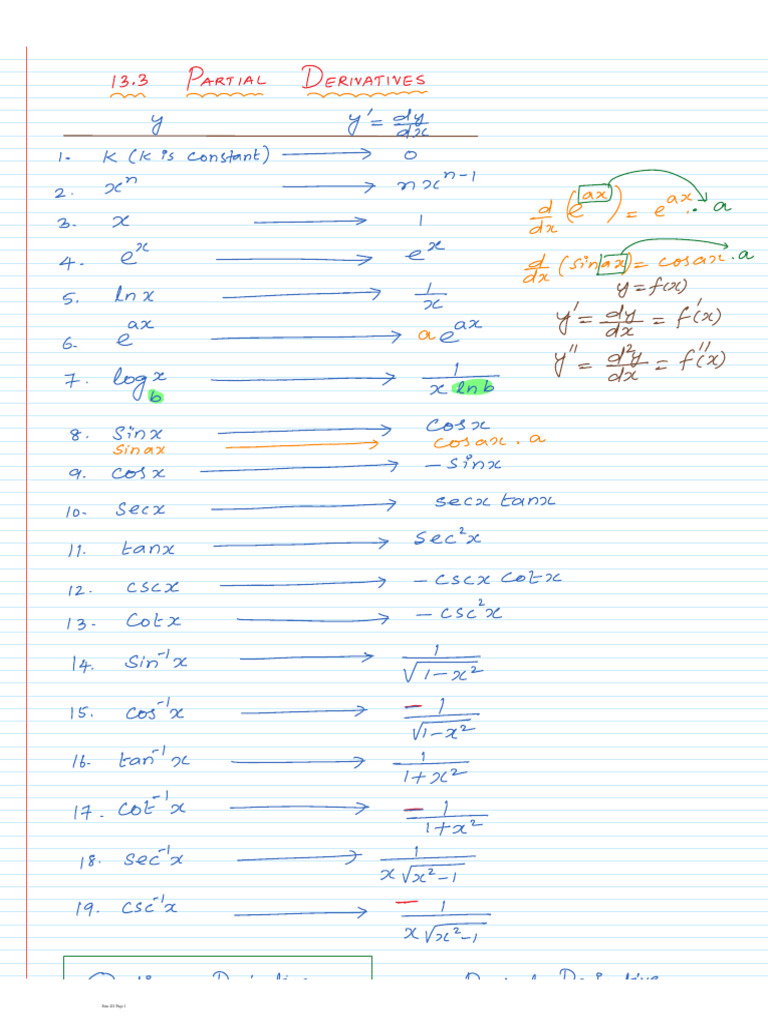 13.3 PARTIAL DERIVATIVES
y y' = dy/dx
1. K (K is constant) → 0
2. xⁿ → nxⁿ⁻¹
3. x → 1
4. eˣ → eˣ
5. ln x → 1/x
6. e^(ax) → a e^(ax)
7. log_b x → 1/(x ln b)
8. sinx → cosx
sinax → cosax · a
9. cosx → -sinx
10. secx → secx tanx
11. tanx → sec²x
12. cscx → -cscx cotx
13. cotx → -csc²x
14. sin⁻¹x → 1/√(1-x²)
15. cos⁻¹x → -1/√(1-x²)
16. tan⁻¹x → 1/(1+x²)
17. cot⁻¹x → -1/(1+x²)
18. sec⁻¹x → 1/(x√(x²-1))
19. csc⁻¹x → -1/(x√(x²-1))
d/dx (e^(ax)) = e^(ax) · a
d/dx (sin ax) = cosax · a
y = f(x)
y' = dy/dx = f'(x)
y'' = d²y/dx = f''(x)